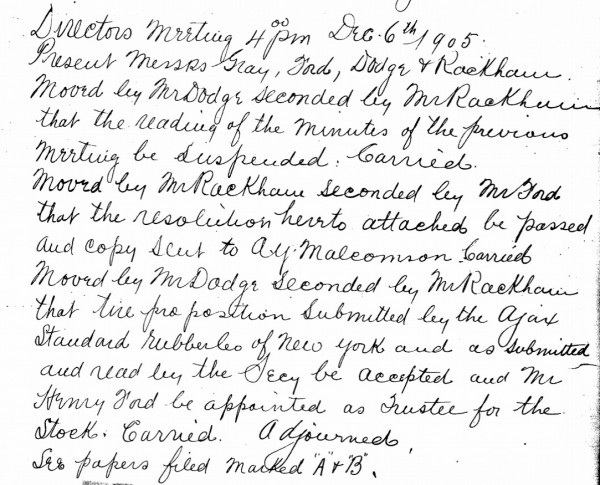 Directors Meeting 4⁰⁰ pm Dec. 6th 1905.
Present Messrs Gray, Ford, Dodge & Rackham.
Moved by Mr Dodge seconded by Mr Rackham
that the reading of the minutes of the previous
Meeting be suspended. Carried.
Moved by Mr Rackham seconded by Mr Ford
that the resolution hereto attached be passed
and copy sent to A.Y. Malcomson. Carried
Moved by Mr Dodge seconded by Mr Rackham
that tire proposition submitted by the Ajax
Standard Rubber Co of New York and as submitted
and read by the Secy be accepted and Mr
Henry Ford be appointed as Trustee for the
Stock. Carried. Adjourned.
See papers filed marked "A" & "B".